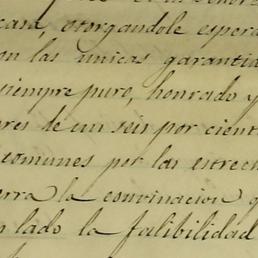 casa, otorgandole espera
on las unicas garantia
siempre puro, honrado y
res de un seis por ciento
comunes por las estrech
erra la convinacion q
n lado la falibilidad